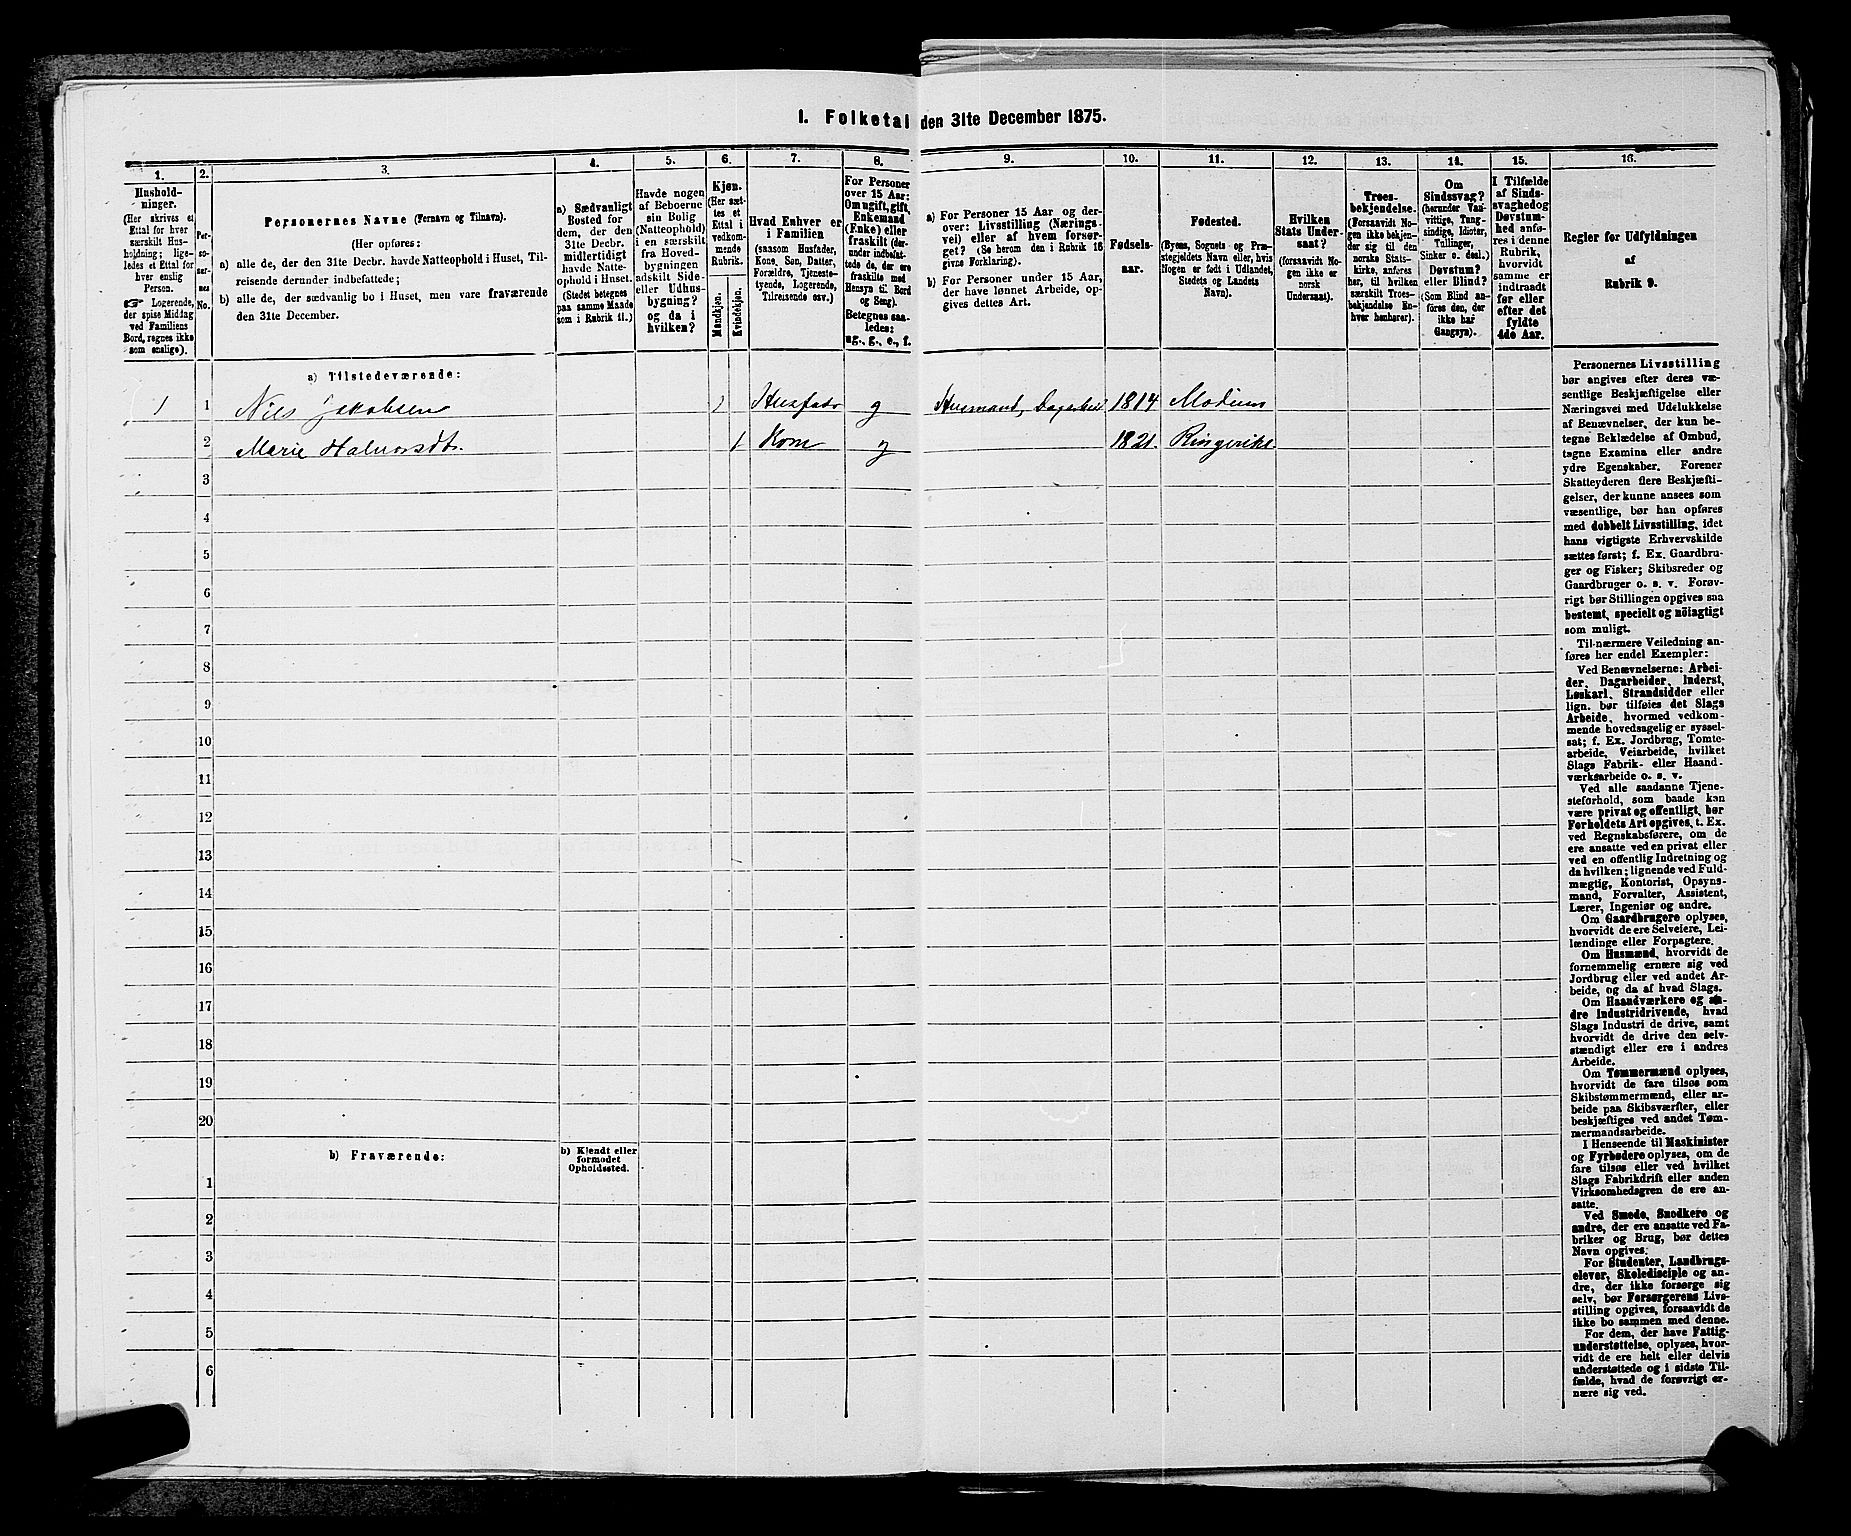 I. Folketal den 31te December 1875.
1.
Hushold-
ninger.
(Her skrives et
Ettal for hver
særskilt Hus-
holdning; lige-
ledes et Ettal for
hver enslig
Person.
☞ Logerende,
der spise Middag
ved Familiens
Bord, regnes ikke
som enslige).
2.
Per-
so-
ner-
nes
No.
3.
Personernes Navne (Fornavn og Tilnavn).
(Her opføres:
a) alle de, der den 31te Decbr. havde Natteophold i Huset, Til-
reisende derunder indbefattede;
b) alle de, der sædvanlig bo i Huset, men vare fraværende
den 31te December.
4.
a) Sædvanligt
Bosted for
dem, der den
31te Decbr.
midlertidigt
havde Natte-
ophold i Huset.
(Stedet betegnes
paa samme Maade
som i Rubrik 11.)
5.
Havde nogen
af Beboerne
sin Bolig
(Natteophold)
i en særskilt
fra Hoved-
bygningen
adskilt Side-
eller Udhus-
bygning?
og da i
hvilken?
6.
Kjøn.
(Her sæt-
tes et
Ettal i
vedkom-
mende
Rubrik.
Mandkjøn.
Kvindekjøn.
7.
Hvad Enhver er
i Familien
(saasom Husfader,
Kone, Søn, Datter,
Forældre, Tjeneste-
tyende, Logerende,
Tilreisende osv.)
8.
For Personer
over 15 Aar:
Om ugift, gift,
Enkemand
(Enke) eller
fraskilt (der-
under indbefat-
tede de, der ere
fraskilte med
Hensyn til Bord
og Seng).
Betegnes saa-
ledes:
ug., g., e., f.
9.
a) For Personer 15 Aar og der-
over: Livsstilling (Nærings-
vei) eller af hvem forsør-
get? (Se herom den i Rubrik 16
givne Forklaring).
b) For Personer under 15 Aar,
der have lønnet Arbeide, op-
gives dettes Art.
10.
Fødsels-
aar.
11.
Fødested.
(Byens, Sognets og Præ-
stegjeldets Navn eller, hvis
Nogen er født i Udlandet,
Stedets og Landets
Navn).
12.
Hvilken
Stats Under-
saat?
(forsaavidt No-
gen ikke er
norsk
Undersaat).
13.
Troes-
bekjendelse.
(Forsaavidt No-
gen ikke bekjen-
der sig til den
norske Stats-
kirke, anføres
her, til hvilken
særskilt Troes-
bekjendelse En-
hver henhører).
14.
Om
Sindssvag?
(herunder Van-
vittige, Tung-
sindige, Idioter,
Tullinger,
Sinker o. desl.)
Døvstum?
eller Blind?
(Som Blind an-
føres den, der
ikke har
Gangsyn).
15.
I Tilfælde
af Sinds-
svaghed og
Døvstum-
hed anfø-
res i denne
Rubrik,
hvorvidt
samme er
indtraadt
før eller
efter det
fyldte
4de Aar.
16.
Regler for Udfyldningen
af
Rubrik 9.
a) Tilstedeværende:
1 1 Nils Jakobsen 1 Husfader g Husmand, Dagarbeid 1814 Modum
2 Marie Halvorsdtr. 1 Kone g 1821. Ringerike
3
4
5
6
7
8
9
10
11
12
13
14
15
16
17
18
19
20
b) Fraværende:
b) Kjendt eller
formodet
Opholdssted.
1
2
3
4
5
6
Personernes Livsstilling
bør angives efter deres væ-
sentlige Beskjæftigelse eller
Næringsvei med Udelukkelse
af Benævnelser, der kun be-
tegne Beklædelse af Ombud,
tagne Examina eller andre
ydre Egenskaber. Forener
Skatteyderen flere Beskjæfti-
gelser, der kunne ansees som
væsentlige, bør han opføres
med dobbelt Livsstilling, idet
hans vigtigste Erhvervskilde
sættes først; f. Ex. Gaardbru-
ger og Fisker; Skibsreder og
Gaardbruger o. s. v. Forøv-
rigt bør Stillingen opgives saa
bestemt, specielt og nöiagtigt
som muligt.
Til nærmere Veiledning an-
føres her endel Exempler:
Ved Benævnelserne: Arbei-
der, Dagarbeider, Inderst,
Løskarl, Strandsidder eller
lign. bør tilføies det Slags
Arbeide, hvormed vedkom-
mende hovedsagelig er syssel-
sat; f. Ex. Jordbrug, Tomte-
arbeide, Veiarbeide, hvilket
Slags Fabrik- eller Haand-
værksarbeide o. s. v.
Ved alle saadanne Tjene-
steforhold, som baade kan
være privat og offentligt, bør
Forholdets Art opgives, t. Ex.
ved Regnskabsførere, om de
ere ansatte ved en privat eller
ved en offentlig Indretning og
da hvilken; lignende ved Fuld-
mægtig, Kontorist, Opsyns-
mand, Forvalter, Assistent,
Lærer, Ingeniør og andre.
Om Gaardbrugere oplyses,
hvorvidt de ere Selveiere, Lei-
lændinge eller Forpagtere.
Om Husmænd, hvorvidt de
fornemmelig ernære sig ved
Jordbrug eller ved andet Ar-
beide, og da af hvad Slags.
Om Haandværkere og an-
dre industridrivende, hvad
Slags Industri de drive, samt
hvorvidt de drive den selv-
stændigt eller ere i andres
Arbeide.
Om Tømmermænd oplyses,
hvorvidt de fare tilsøs som
Skibstømmermænd, eller ar-
beide paa Skibsværfter, eller
beskjæftiges ved andet Tøm-
mermandsarbeide.
I Henseende til Maskinister
og Fyrbødere oplyses, om de
fare tilsøs eller ved hvilket
Slags Fabrikdrift eller anden
Virksomhedsgren de ere an-
satte.
Ved Smede, Snedkere og
andre, der ere ansatte ved Fa-
briker og Brug, bør dettes
Navn opgives.
For Studenter, Landbrugs-
elever, Skoledisciple og an-
dre, der ikke forsørge sig
selv, bør Forsørgerens Livs-
stilling opgives, forsaavidt de
ikke bo sammen med denne.
For dem, der have Fattig-
understøttelse, oplyses, hvor-
vidt de ere helt eller delvis
understøttede og i sidste Til-
fælde, hvad de forøvrigt er-
nære sig ved.